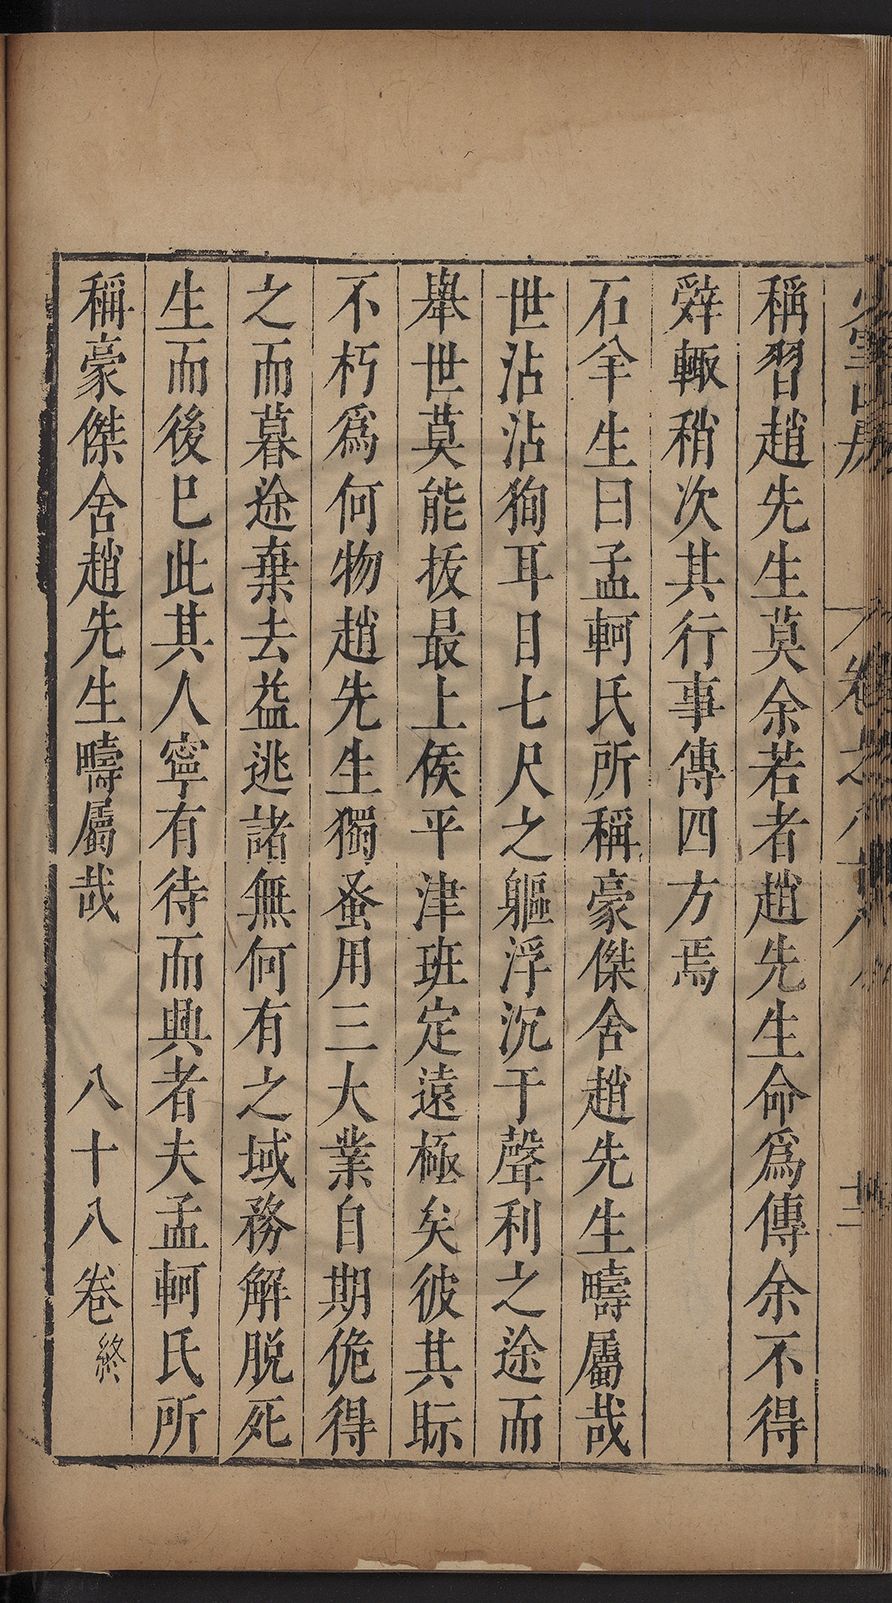 稱習趙先生莫余若者趙先生命爲傳余不得
辤輙稍次其行事傳四方焉
石羊生曰孟軻氏所稱豪傑舍趙先生疇屬哉
世沾沾狥耳目七尺之軀浮沉于聲利之途而
舉世莫能拔最上侯平津班定遠極矣彼其眎
不朽爲何物趙先生獨蚤用三大業自期佹得
之而暮途棄去益逃諸無何有之域務解脱死
生而後已此其人寧有待而興者夫孟軻氏所
稱豪傑舍趙先生疇屬哉 八十八卷終